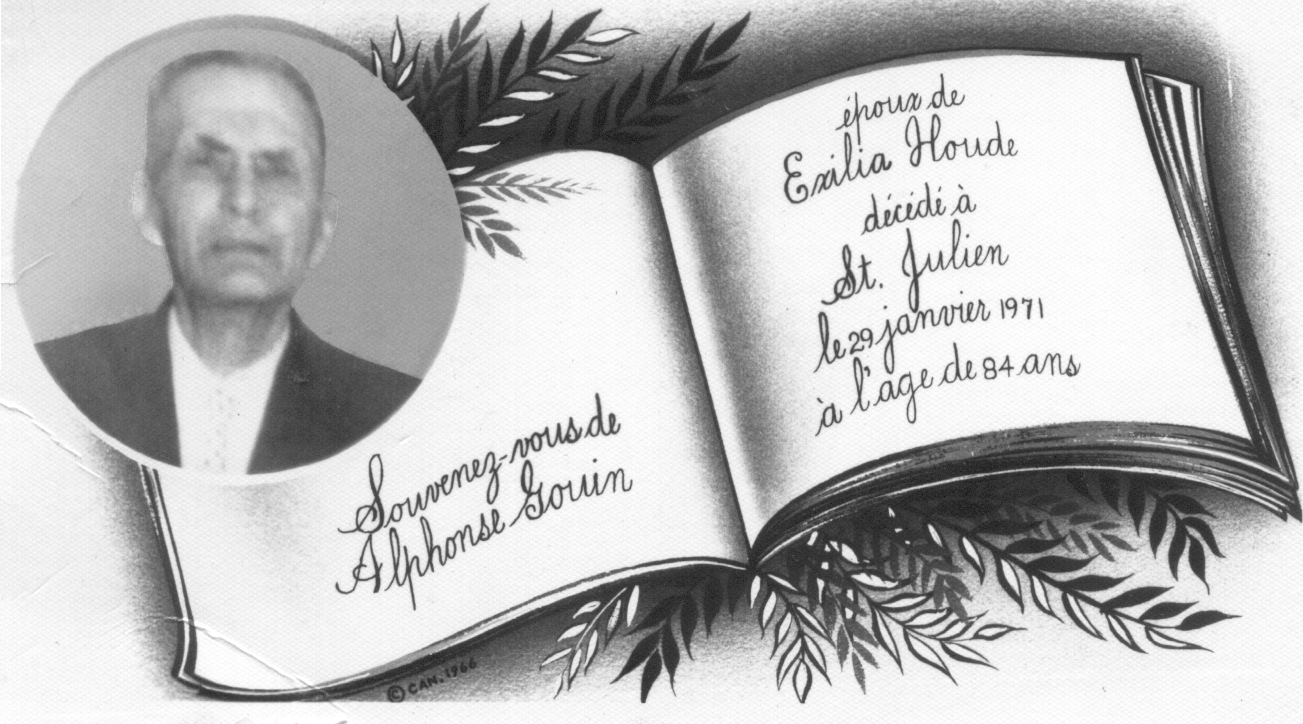 Souvenez-vous de
Alphonse Gouin
époux de
Exilia Houde
décédé à
St. Julien
le 29 janvier 1971
à l'age de 84 ans
© CAN. 1966